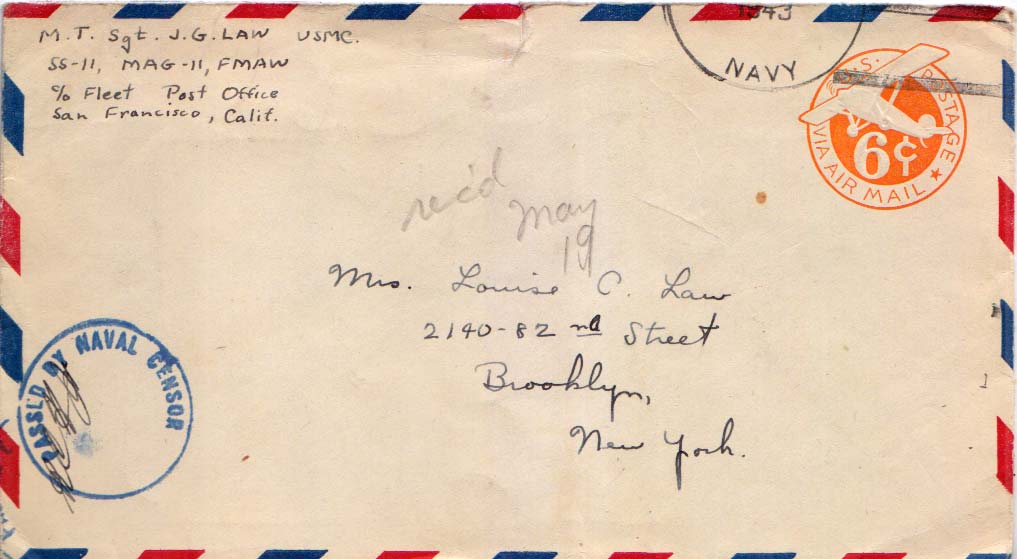 M.T. Sgt. J.G. LAW USMC.
SS-11, MAG-11, FMAW
c/o Fleet Post Office
San Francisco, Calif.
1943
NAVY
U.S. POSTAGE
6¢
VIA AIR MAIL
rec'd
May
19
Mrs. Louise C. Law
2140-82 nd Street
Brooklyn,
New York.
PASSED BY NAVAL CENSOR